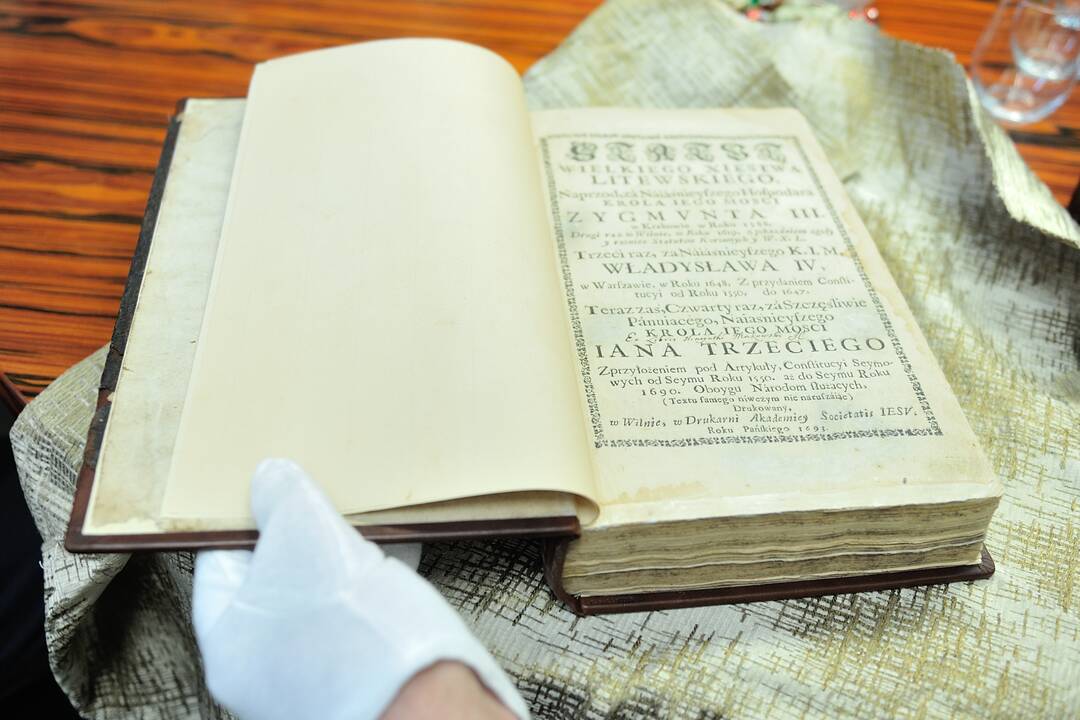 STATVT
WIELKIEGO XIESTWA
LITEWSKIEGO.
Naprzod, zá Náiáśnieyſzego Hoſpodárá
KROLA IEGO MOSCI
ZYGMVNTA III.
w Krakowie w Roku 1588.
Drugi raz w Wilnie, w Roku 1619. z pokazániem zgody
y rożnice Statutow Koronnych y W. X. L.
Trzeci raz, zá Náiáśnieyſzego K. I. M.
WŁADYSŁAWA IV.
w Warſzawie, w Roku 1648. Z przydániem Conſti-
tucyi od Roku 1550. do 1647.
Teraz zás, Czwarty raz, zá Szczęśliwie
Pánuiącego, Náiáśnieyſzego
KROLA IEGO MOSCI
IANA TRZECIEGO
Z przyłożeniem pod Artykuły, Conſtitucyi Seymo-
wych od Seymu Roku 1550. aż do Seymu Roku
1690. Oboygu Národom ſłużących,
(Textu ſámego niwczym nie náruſzáiąc)
Drukowány,
w Wilnie, w Drukárni Akádemiey Societatis IESV.
Roku Páńſkiego 1693.